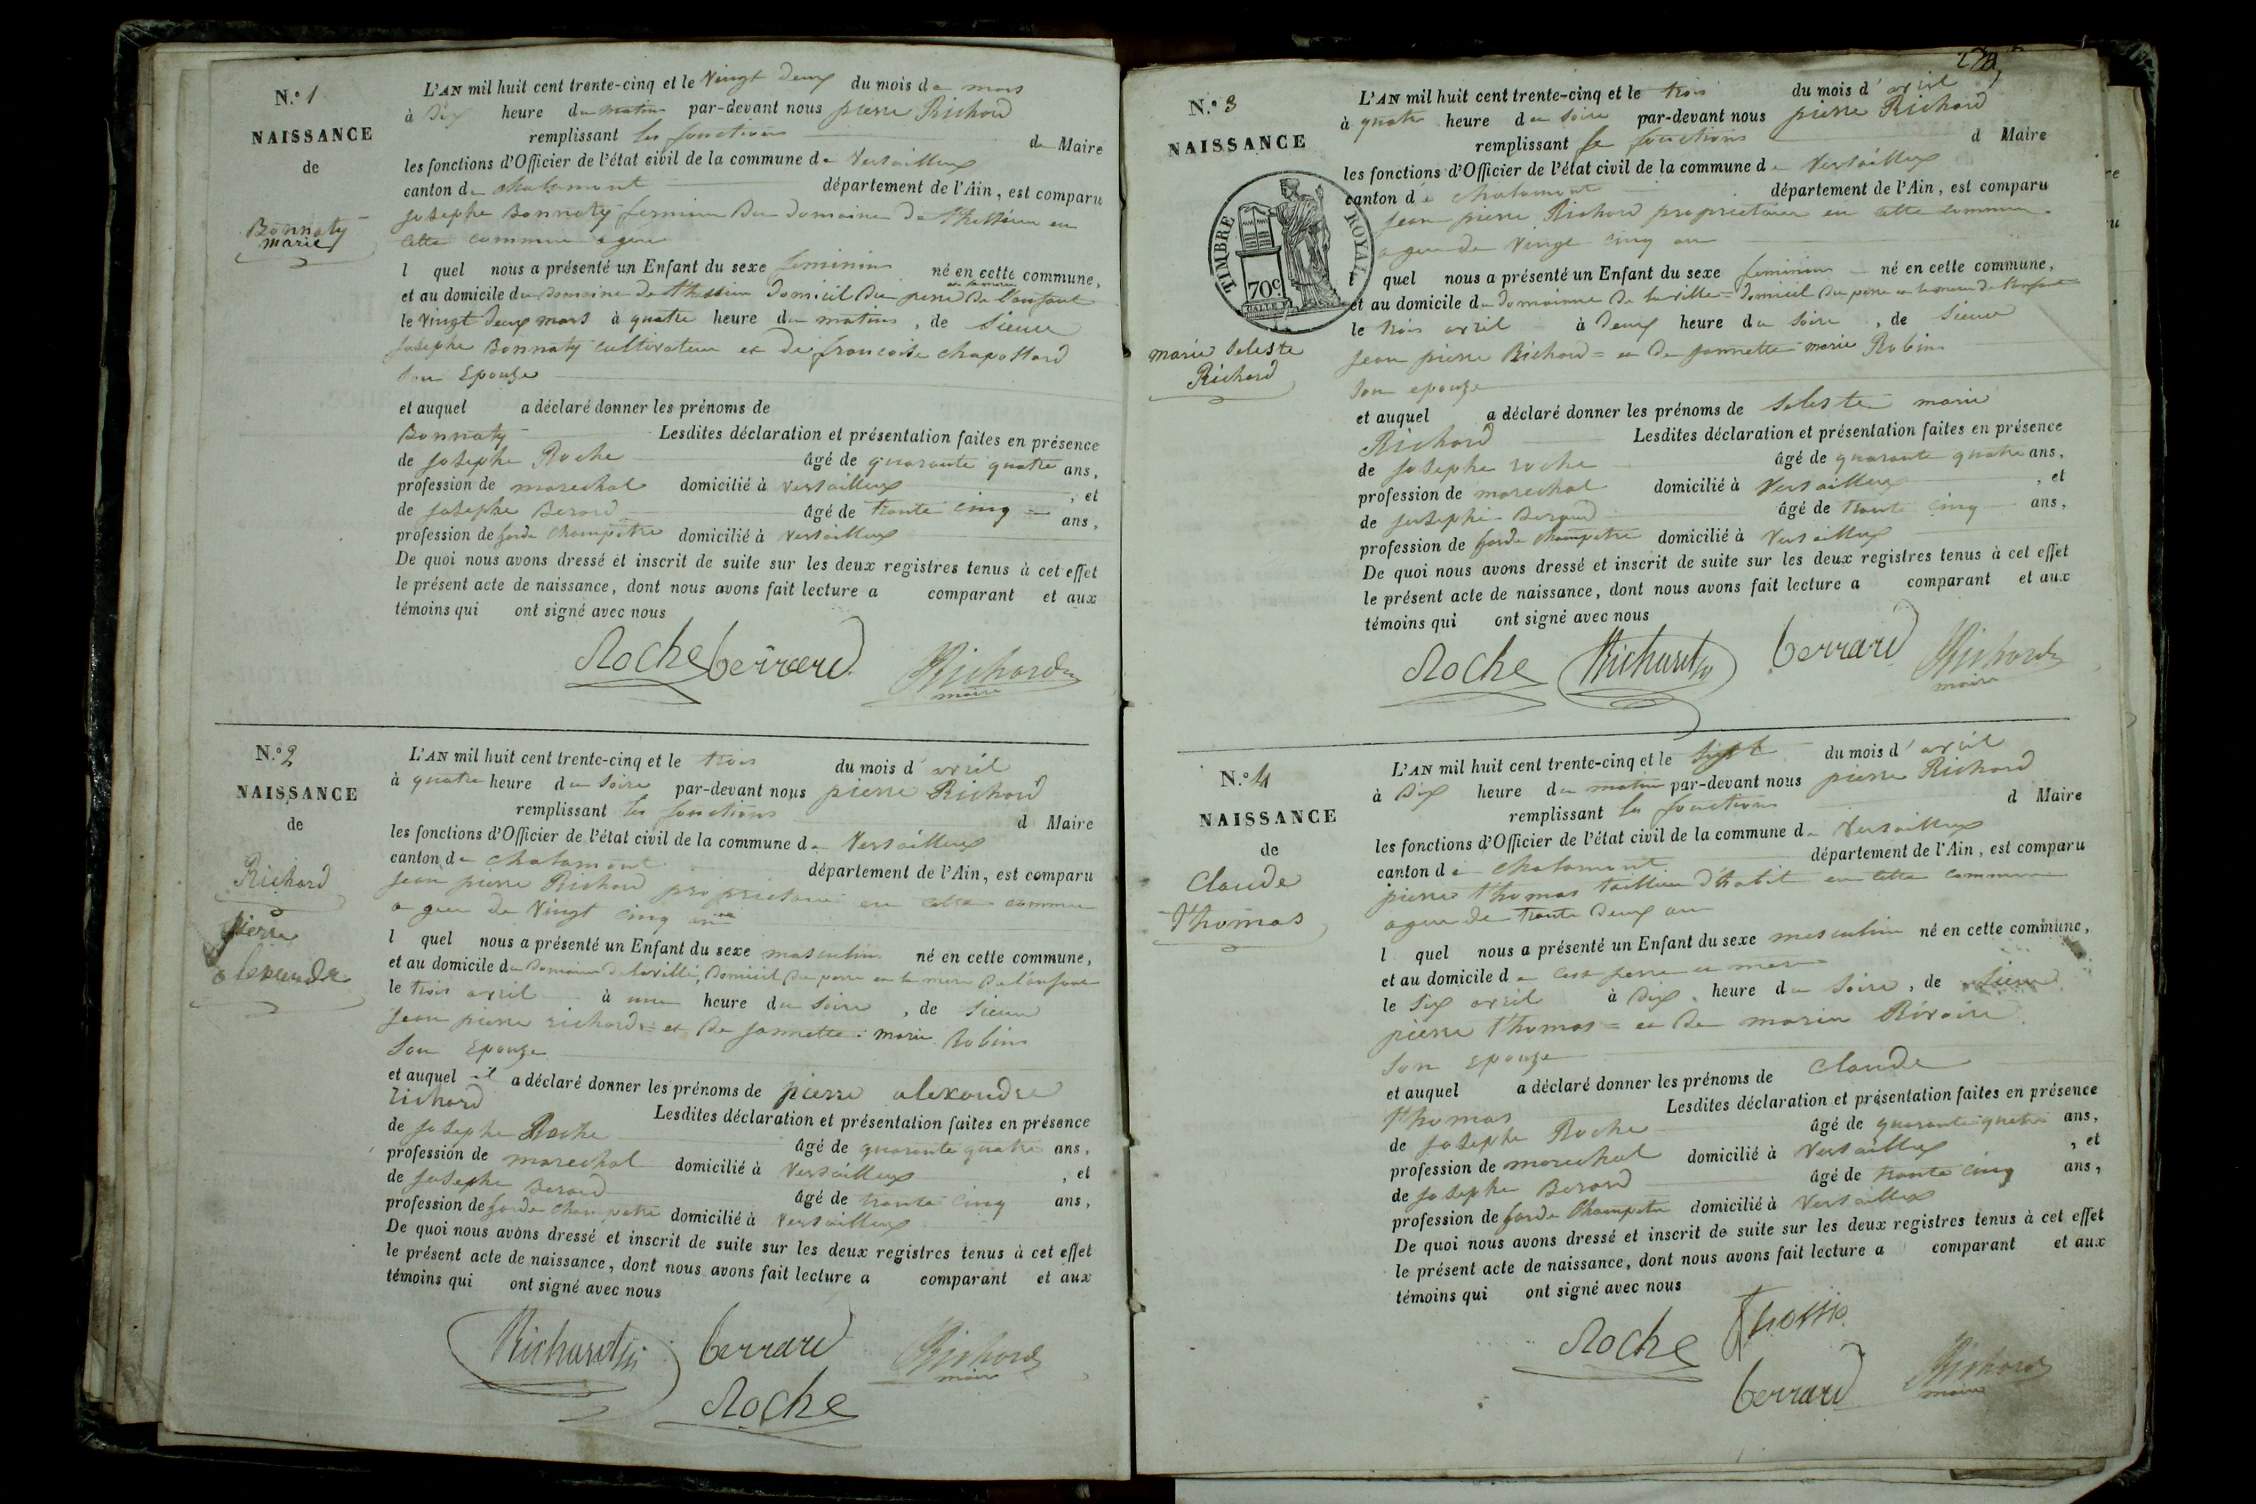 N.º 1
NAISSANCE
de
Bonnaty
marie
L'AN mil huit cent trente-cinq et le Vingt deux du mois de mars
à Dix heure du matin par-devant nous pierre Richard
remplissant les fonctions de Maire
les fonctions d'Officier de l'état civil de la commune de Versailleux
canton de chalamont département de l'Ain, est comparu
Josephe Bonnaty fermier Du domaine de en
cette commune
l quel nous a présenté un Enfant du sexe feminin né en cette commune,
et au domicile du Domaine de Domicil Du pere De l'enfant
le Vingt deux mars à quatre heure du matin, de Sieur
Josephe Bonnaty cultivateur et de francoise chapottard
Son Epouze
et auquel a déclaré donner les prénoms de
Bonnaty Lesdites déclaration et présentation faites en présence
de Josephe Roche âgé de quarante quatre ans,
profession de marechal domicilié à Versailleux, et
de Josephe Berard âgé de trante cinq ans,
profession de garde Champetre domicilié à Versailleux
De quoi nous avons dressé et inscrit de suite sur les deux registres tenus à cet effet
le présent acte de naissance, dont nous avons fait lecture a comparant et aux
témoins qui ont signé avec nous
Roche berrard Richard
maire
N.º 2
NAISSANCE
de
Richard
pierre
alexandre
L'AN mil huit cent trente-cinq et le trois du mois d'avril
à quatre heure du Soire par-devant nous pierre Richard
remplissant les fonctions d Maire
les fonctions d'Officier de l'état civil de la commune de Versailleux
canton de chalamont département de l'Ain, est comparu
Jean pierre Richard proprietaire en cette commune
a gee de Vingt cinq
l quel nous a présenté un Enfant du sexe masculin né en cette commune,
et au domicile du Domaine De laville, Domicil Du pere et la mere De l'enfant
le trois avril à une heure du Soire, de Sieur
Jean pierre richard = et De Jannette marie Robin
Son Epouze
et auquel il a déclaré donner les prénoms de pierre alexandre
richard Lesdites déclaration et présentation faites en présence
de Josephe Roche âgé de quarante quatre ans,
profession de marechal domicilié à Versailleux, et
de Josephe Berard âgé de trante cinq ans,
profession de garde Champetre domicilié à Versailleux
De quoi nous avons dressé et inscrit de suite sur les deux registres tenus à cet effet
le présent acte de naissance, dont nous avons fait lecture a comparant et aux
témoins qui ont signé avec nous
Richard berrard Richard
maire
Roche
N.º 3
NAISSANCE
TIMBRE ROYAL
70c
marie Seleste
Richard
L'AN mil huit cent trente-cinq et le trois du mois d'avril
à quatre heure du Soire par-devant nous pierre Richard
remplissant fonctions d Maire
les fonctions d'Officier de l'état civil de la commune de Versailleux
canton de chalamont département de l'Ain, est comparu
Jean pierre Richard proprietaire en cette commune
a gee de Vingt cinq an
l quel nous a présenté un Enfant du sexe feminin né en cette commune,
et au domicile du domainne De laville = domicil Du pere et la mere de l'enfant
le trois avril à Deux heure du Soire, de Sieur
Jean pierre Richard = et De Jannette marie Robin
Son epouze
et auquel a déclaré donner les prénoms de Seleste marie
Richard Lesdites déclaration et présentation faites en présence
de Josephe roche âgé de quarante quatre ans,
profession de marechal domicilié à Versailleux, et
de Josephe âgé de trante cinq ans,
profession de garde Champetre domicilié à Versailleux
De quoi nous avons dressé et inscrit de suite sur les deux registres tenus à cet effet
le présent acte de naissance, dont nous avons fait lecture a comparant et aux
témoins qui ont signé avec nous
Roche Richard berrard Richard
maire
N.º 4
NAISSANCE
de
Claude
Thomas
L'AN mil huit cent trente-cinq et le Sept du mois d'avril
à Dix heure du matin par-devant nous pierre Richard
remplissant les fonctions d Maire
les fonctions d'Officier de l'état civil de la commune de Versailleux
canton de chalamont département de l'Ain, est comparu
pierre Thomas tailleur D'habit en cette commune
agee de Trante Deux an
l quel nous a présenté un Enfant du sexe masculin né en cette commune,
et au domicile de pere et mere
le Six avril à Dix heure du Soire, de Sieur
pierre Thomas = et De marie
Son Epouze
et auquel a déclaré donner les prénoms de Claude
Thomas Lesdites déclaration et présentation faites en présence
de Josephe Roche âgé de quarante quatre ans,
profession de marechal domicilié à Versailleux, et
de Josephe Berard âgé de trante cinq ans,
profession de garde Champetre domicilié à Versailleux
De quoi nous avons dressé et inscrit de suite sur les deux registres tenus à cet effet
le présent acte de naissance, dont nous avons fait lecture a comparant et aux
témoins qui ont signé avec nous
Roche
berrard Richard
maire